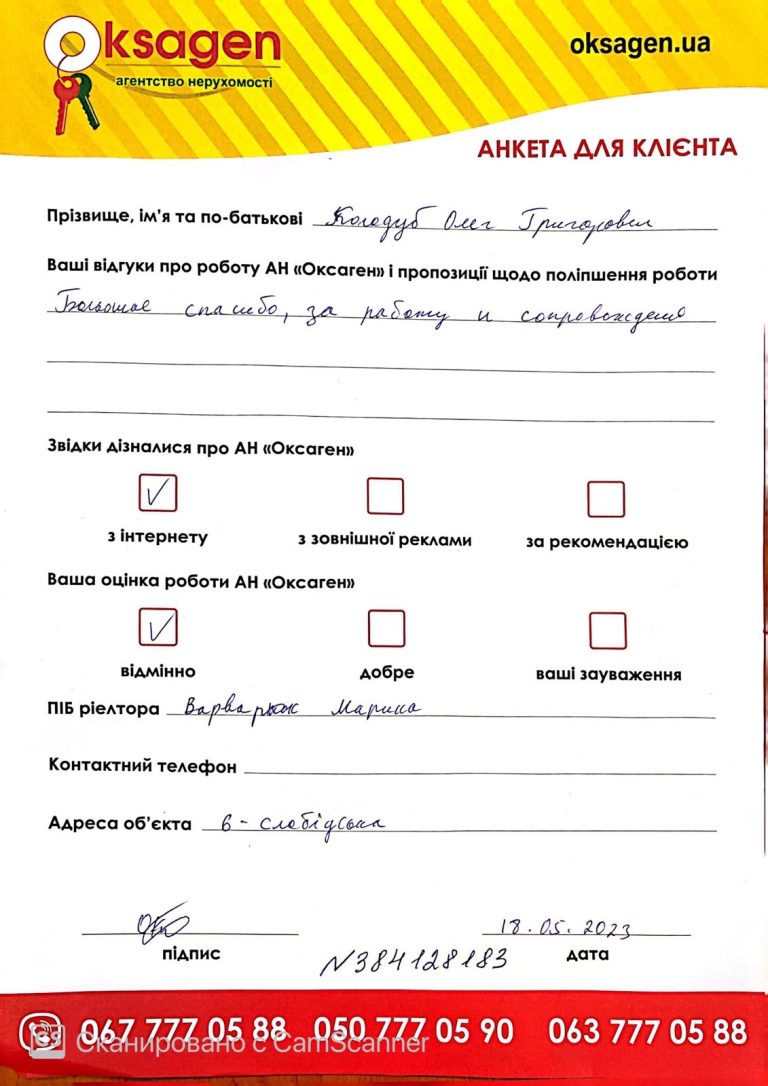 Oksagen
агентство нерухомості
oksagen.ua
АНКЕТА ДЛЯ КЛІЄНТА
Прізвище, ім'я та по-батькові Колодуб Олег Григорович
Ваші відгуки про роботу АН «Оксаген» і пропозиції щодо поліпшення роботи
Большое спасибо, за работу и сопровождение
Звідки дізналися про АН «Оксаген»
з інтернету з зовнішної реклами за рекомендацією
Ваша оцінка роботи АН «Оксаген»
відмінно добре ваші зауваження
ПІБ ріелтора Марина
Контактний телефон
Адреса об'єкта 6 - слобідська
18.05.2023
підпис дата
N384128183
067 777 05 88 050 777 05 90 063 777 05 88
CS Сканировано с CamScanner